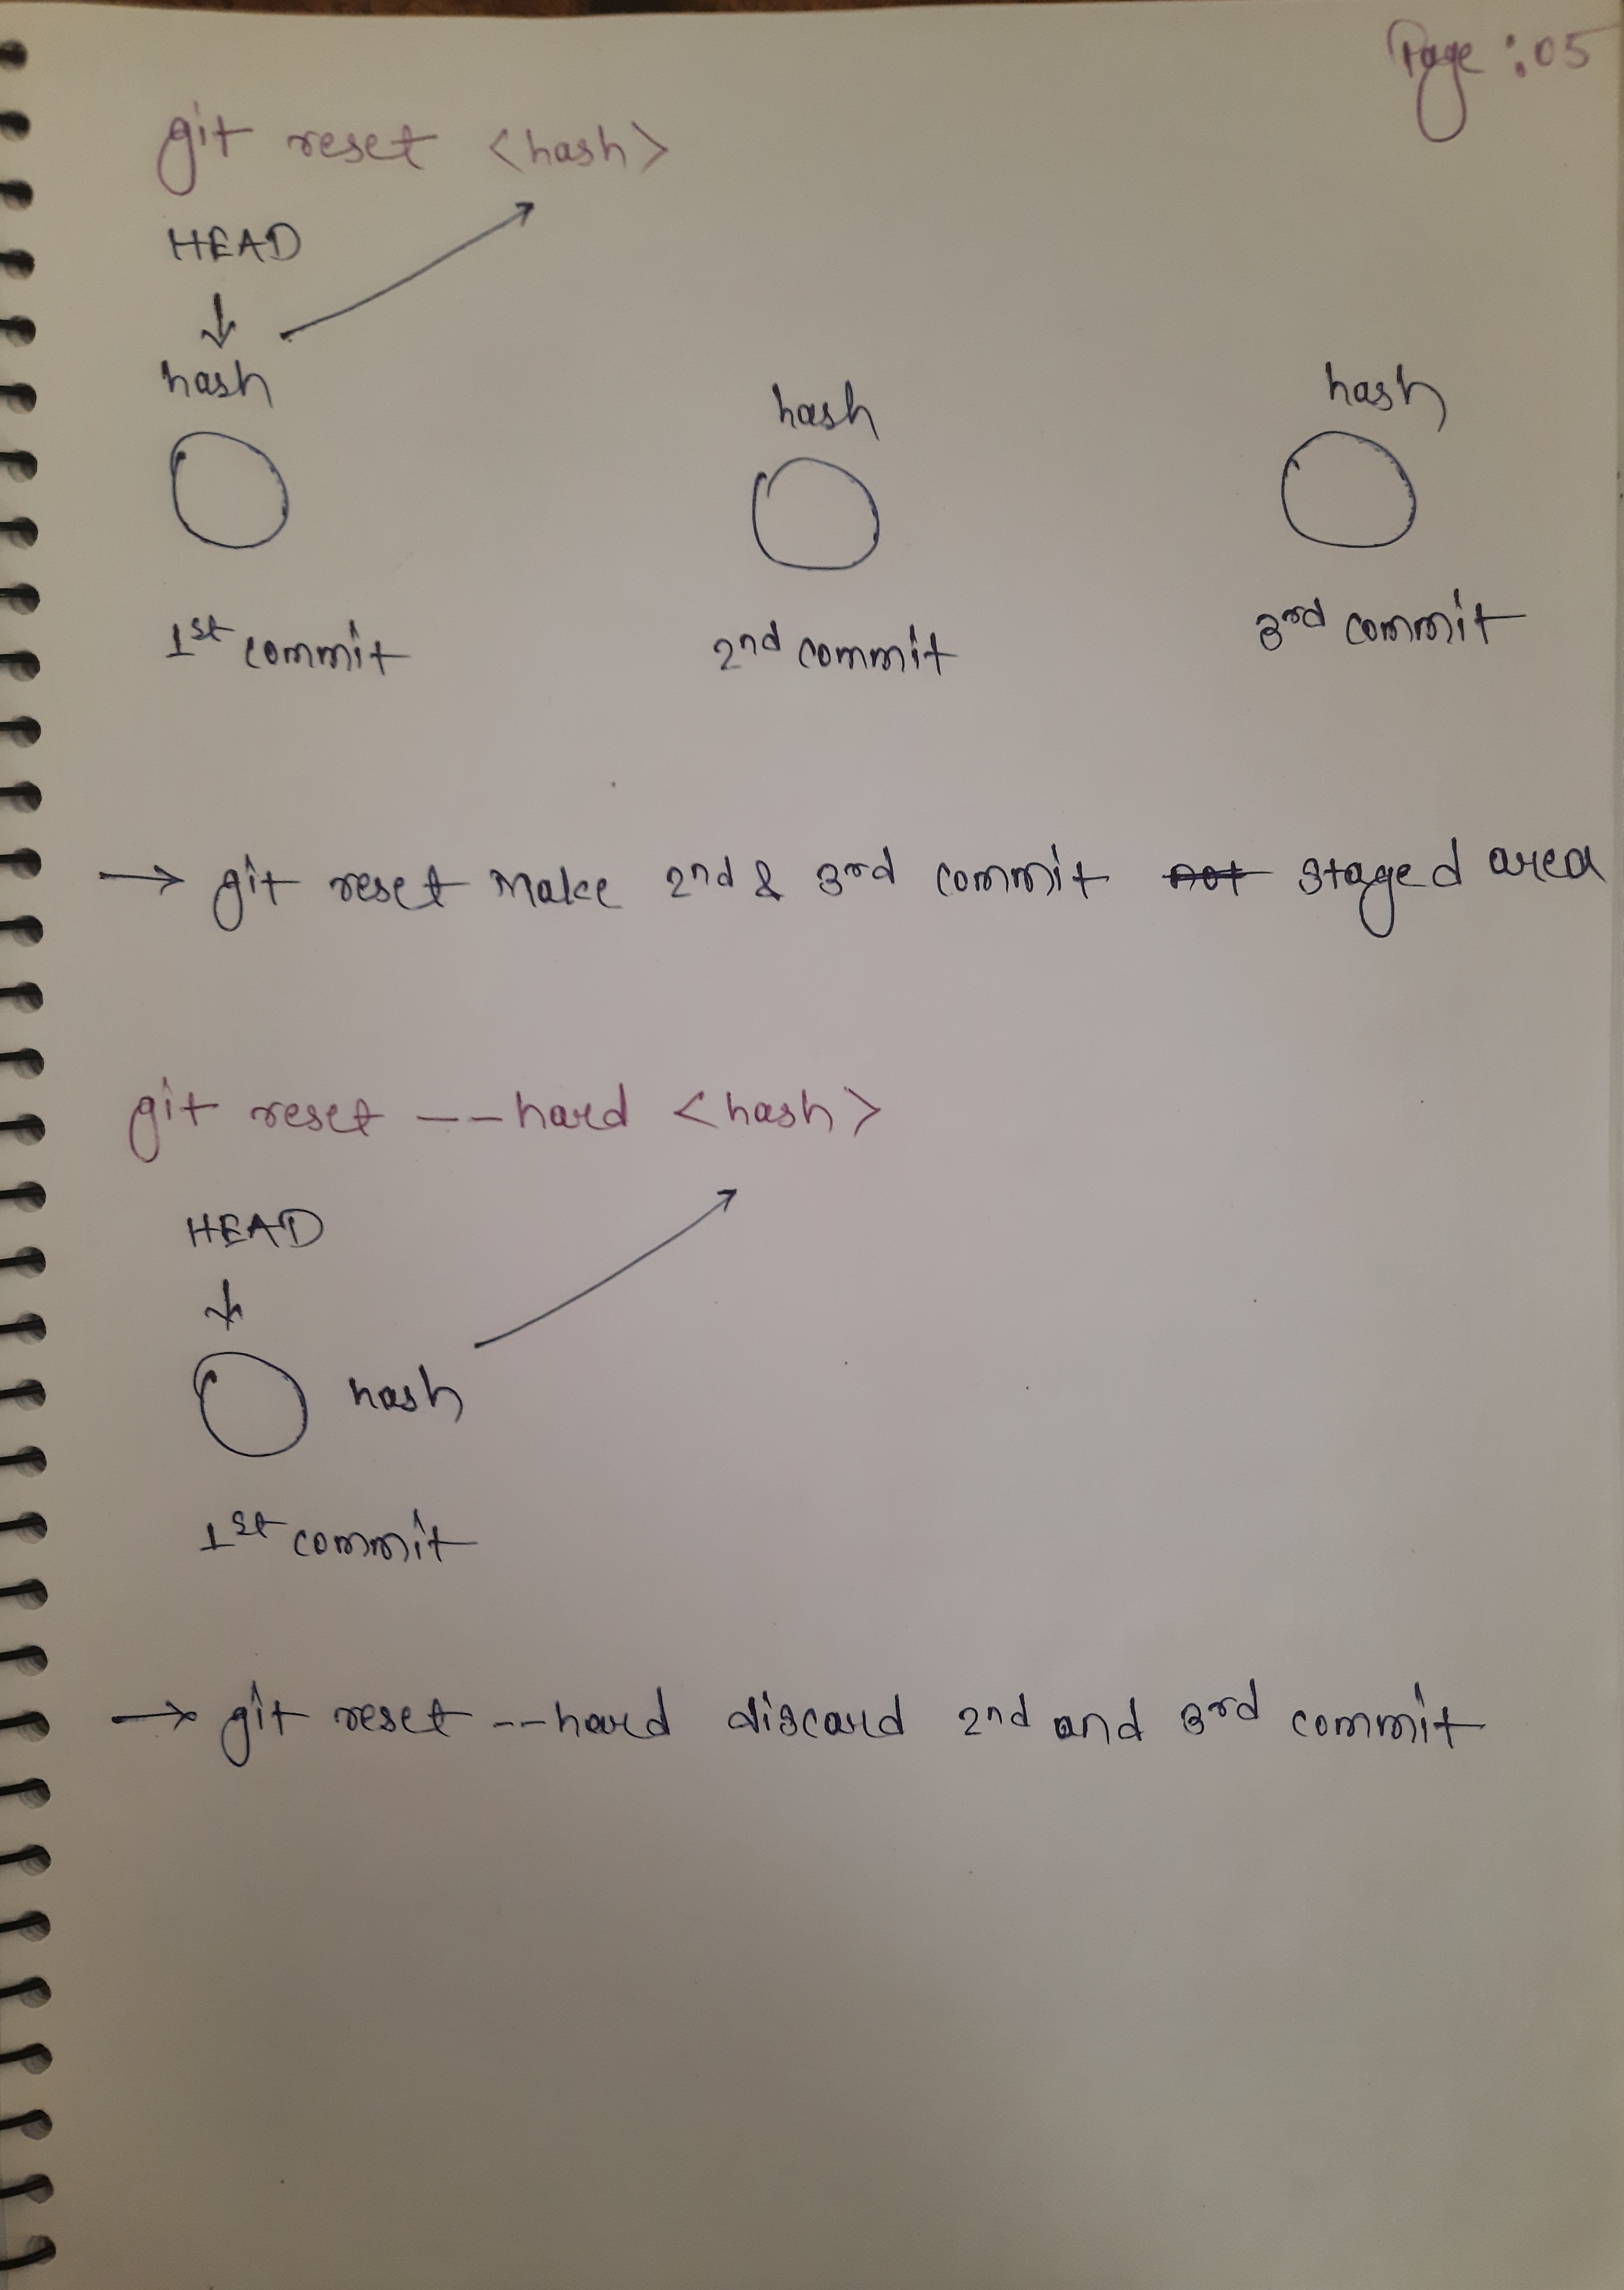 Page : 05
git reset <hash>
HEAD
hash
hash
hash
1st commit
2nd commit
3rd commit
→ git reset make 2nd & 3rd commit not staged area
git reset --hard <hash>
HEAD
hash
1st commit
→ git reset --hard discard 2nd and 3rd commit